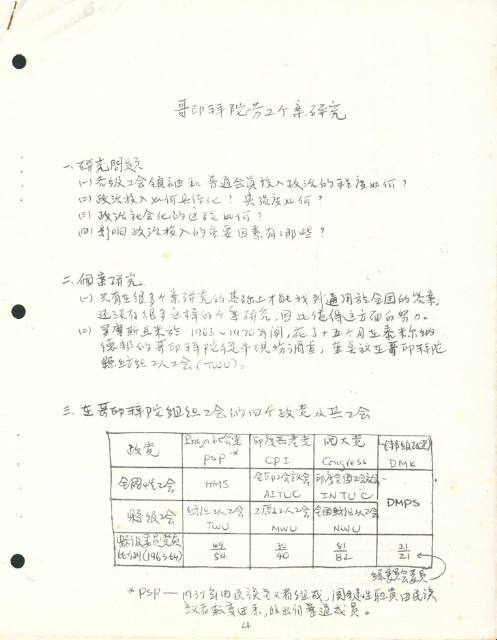 哥印拜陀劳工个案研究
一. 研究问题
(一) 各级工会领袖和普通会员投入政治的程度如何?
(二) 政治投入如何具体化? 其强度如何?
(三) 政治社会化的过程如何?
(四) 影响政治投入的重要因素有哪些?
二. 個案研究
(一) 只有在很多个案研究的基础上才能找到通用於全国的答案,
还没有很多这样的个案研究, 因此值得这方面的努力。
(二) 罗摩斯瓦米於 1963-1970年间, 花了十五个月在泰米尔纳
德邦的哥印拜陀从事现场调查; 重点放在哥印拜陀
縣纺织工人工会 (TWU)。
三. 在哥印拜陀组织工会的四个政党及其工会
政党 Praja社会党 PSP * 印度共产党 CPI 国大党 Congress (邦级政党) DMK
全国性工会 HMS 全印工会议会 AITUC 印度全国工会议会 INTUC DMPS
縣级工会 纺织工人工会 TWU 工厂工人工会 MWU 全国纺织工人工会 NWU
縣级委员党员比例 (1963-64) 49/54 30/40 81/82 21/21
縣委员会委员
* PSP — 由民族主义者组成, 关键性职责由民族
主义者
4